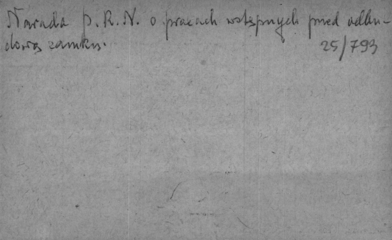 Narada p. R.N. o pracach wstępnych przed odbu-
dową zamku. 25/793